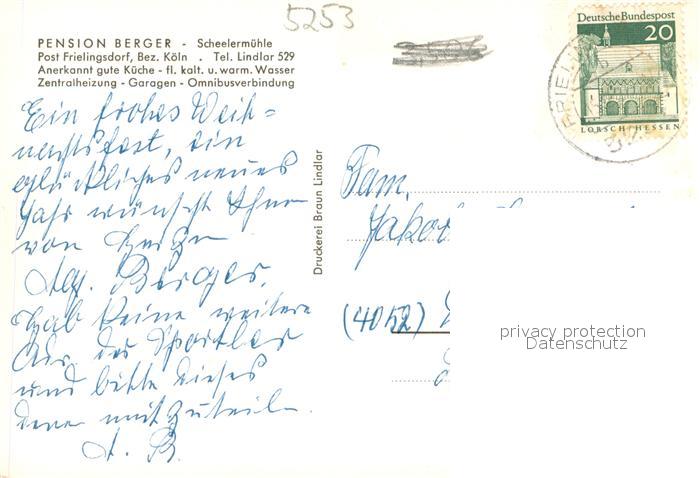 5253
PENSION BERGER - Scheelermühle
Post Frielingsdorf, Bez. Köln . Tel. Lindlar 529
Anerkannt gute Küche - fl. kalt. u. warm. Wasser
Zentralheizung - Garagen - Omnibusverbindung
Ein frohes Weih=
nachtsfest, ein
glückliches neues
Jahr wünscht Ihnen
von Herzen
Berger.
Hab keine weitere
der Sportler
und bitte dieses
mitzuteilen.
A. B.
Druckerei Braun Lindlar
Deutsche Bundespost
20
LORSCH/HESSEN
FRIEL
Fam.
Jakob
(4052)
privacy protection
Datenschutz